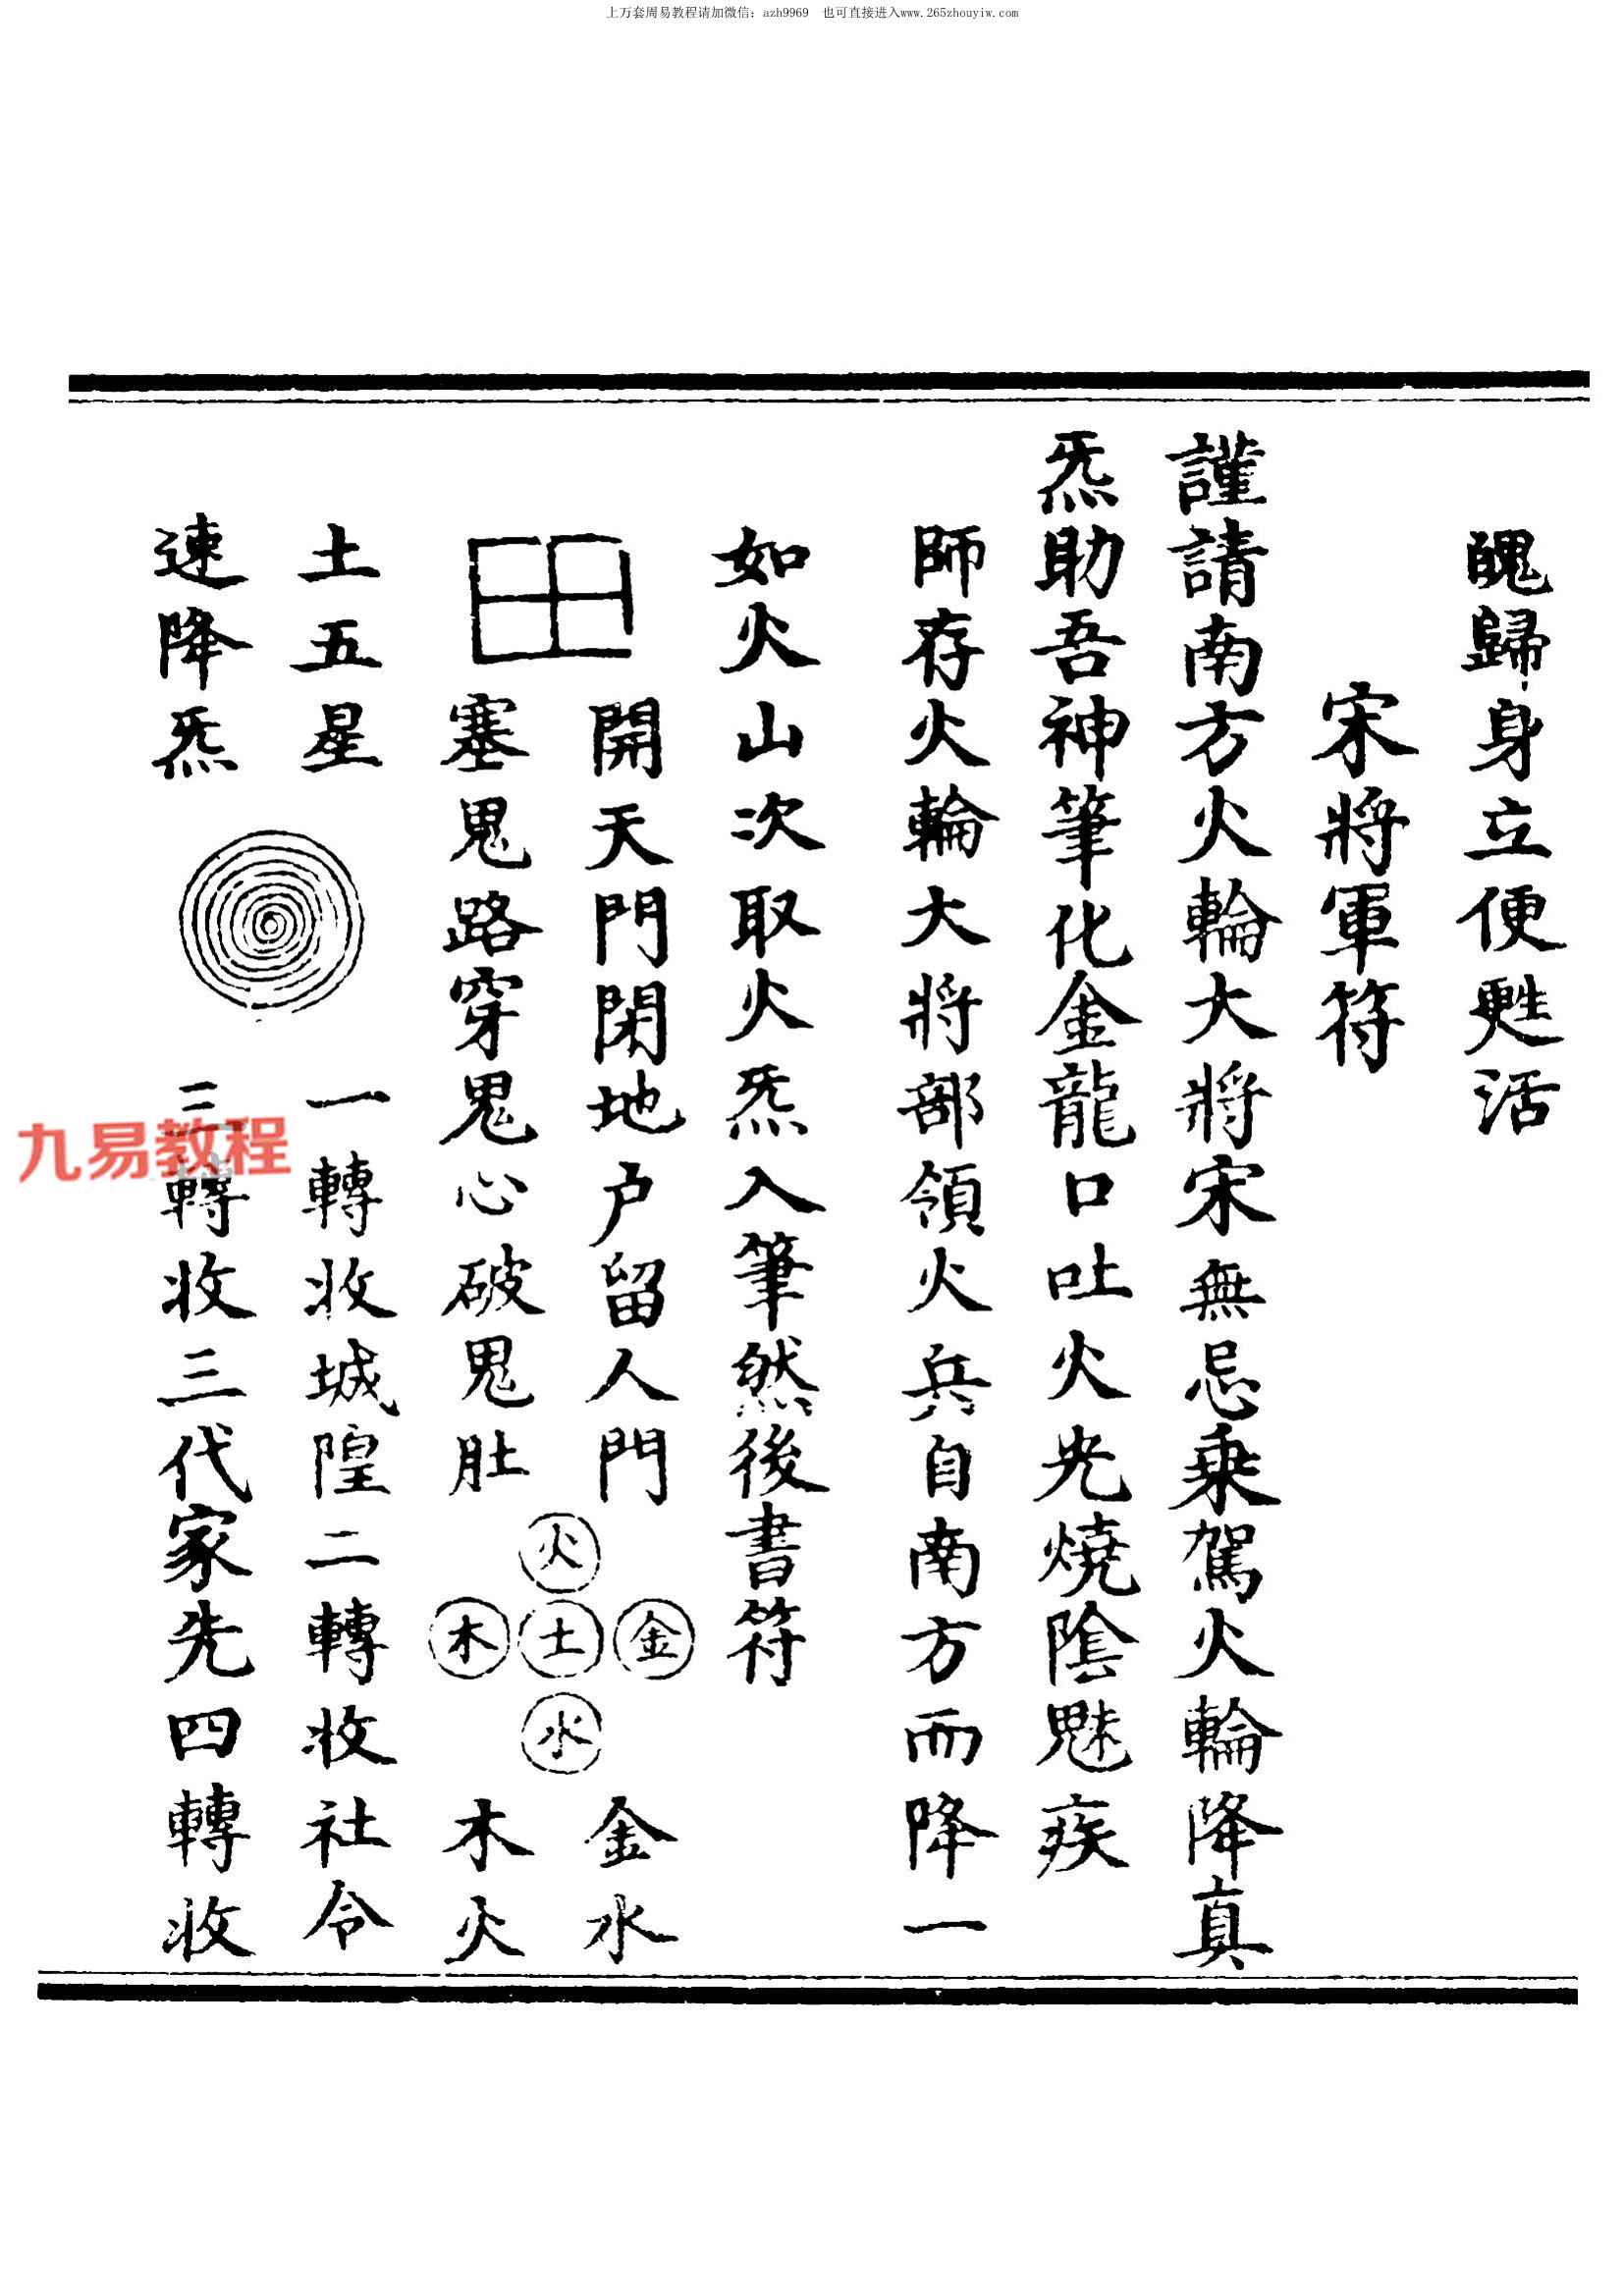 上万套周易教程请加微信：azh9969  也可直接进入www.265zhouyiw.com
魄歸身立便甦活
宋將軍符
謹請南方火輪大將宋無忌乗駕火輪降真
炁助吾神筆化金龍口吐火光燒陰魅疾
師存火輪大將部領火兵自南方而降一
如火山次取火炁入筆然後書符
開天門閉地户留人門
塞鬼路穿鬼心破鬼肚
火
木 土 金
水
金水
木火
土五星
速降炁
一轉收城隍二轉收社令
三轉收三代家先四轉收
九易教程